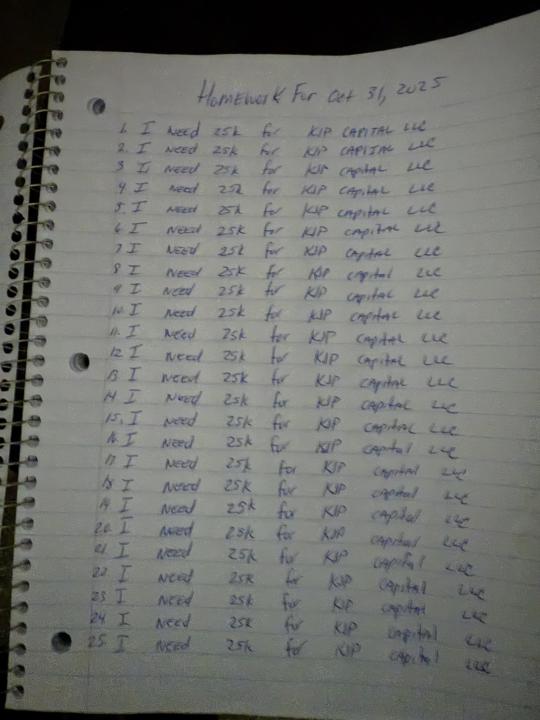 Homework For Oct 31, 2025
1. I Need 25k for KJP CAPITAL LLC
2. I Need 25k for KJP CAPITAL LLC
3 I Need 25k for KJP Capital LLC
4 I Need 25k for KJP Capital LLC
5. I Need 25k for KJP Capital LLC
6 I Need 25k for KJP Capital LLC
7 I Need 25k for KJP Capital LLC
8 I Need 25k for KJP Capital LLC
9 I Need 25k for KJP Capital LLC
10. I Need 25k for KJP Capital LLC
11. I Need 25k for KJP Capital LLC
12 I Need 25k for KJP Capital LLC
13 I Need 25k for KJP Capital LLC
14 I Need 25k for KJP Capital LLC
15. I Need 25k for KJP Capital LLC
16. I Need 25k for KJP Capital LLC
17 I Need 25k for KJP Capital LLC
18 I Need 25k for KJP Capital LLC
19 I Need 25k for KJP Capital LLC
20. I Need 25k for KJP Capital LLC
21 I Need 25k for KJP Capital LLC
22 I Need 25k for KJP Capital LLC
23 I Need 25k for KJP Capital LLC
24 I Need 25k for KJP Capital LLC
25 I Need 25k for KJP Capital LLC